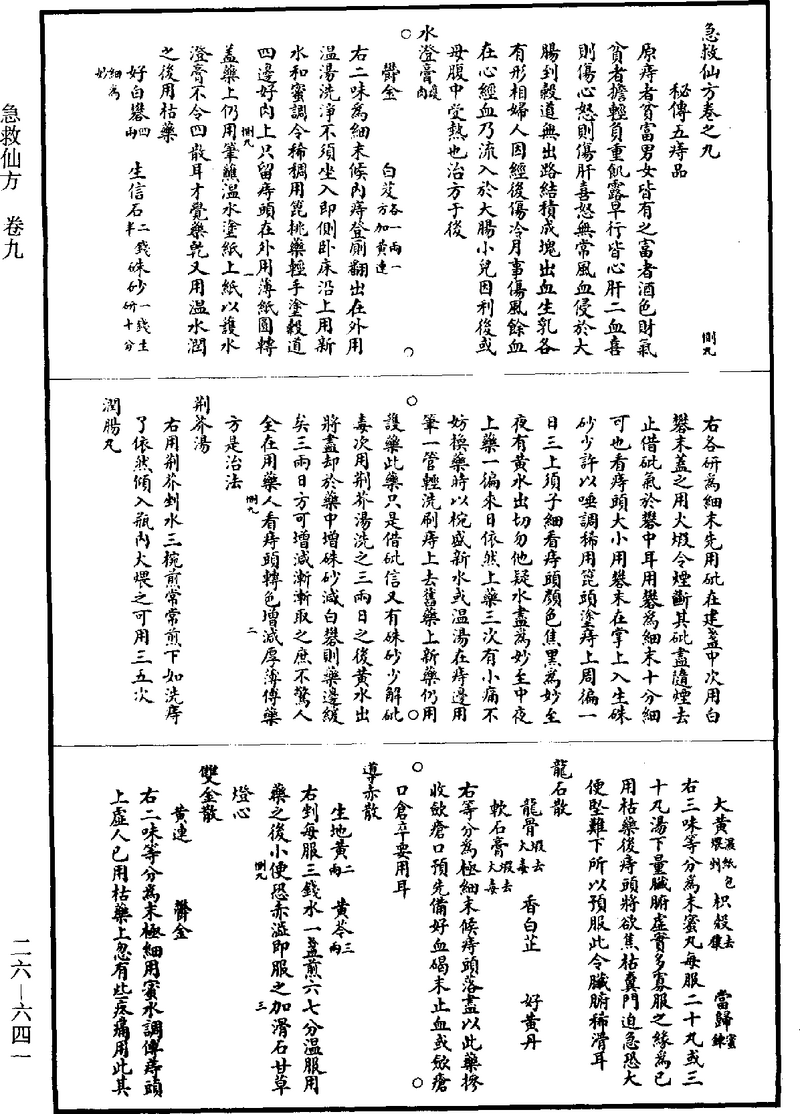 急救仙方卷之九
惻九
秘傳五痔品
原痔者貧富男女皆有之富者酒色財氣
貧者擔輕負重飢露早行皆心肝二血喜
則傷心怒則傷肝喜怒無常風血侵於大
腸到穀道無出路結積成塊出血生乳各
有形相婦人因經後傷冷月事傷風餘血
在心經血乃流入於大腸小兒因利後或
母腹中受熱也治方于後
水澄膏
鬱金 白芨各一兩一方加黃連
右二味為細末候內痔登廁翻出在外用
温湯洗淨不須坐入即側卧床沿上用新
水和蜜調令稀稠用篦挑藥輕手塗穀道
四邊好肉上只留痔頭在外用薄紙圓轉
惻九 一
蓋藥上仍用筆蘸温水塗紙上紙以護水
澄膏不令四散耳才覺藥乾又用温水潤
之後用枯藥
好白礬四兩 生信石二錢半 硃砂一錢生研十分細為妙
右各研為細末先用砒在建盞中次用白
礬末蓋之用火煅令煙斷其砒盡隨煙去
止借砒氣於礬中耳用礬為細末十分細
可也看痔頭大小用礬末在掌上入生硃
砂少許以唾調稀用篦頭塗痔上周徧一
日三上須子細看痔頭顏色焦黑為妙至
夜有黃水出切勿他疑水盡為妙至中夜
上藥一徧來日依然上藥三次有小痛不
妨換藥時以椀盛新水或温湯在痔邊用
筆一管輕洗刷痔上去舊藥上新藥仍用
護藥此藥只是借砒信又有硃砂少解砒
毒次用荆芥湯洗之三兩日之後黃水出
將盡却於藥中增硃砂減白礬則藥邊緩
矣三兩日方可增減漸漸取之庶不驚人
全在用藥人看痔頭轉色增減厚薄傅藥
惻九 二
方是治法
荆芥湯
右用荆芥剉水三椀煎常常煎下如洗痔
了依然傾入瓶內火煨之可用三五次
潤腸丸
大黃濕紙包煨剉 枳殼去穰 當歸蜜鍊
右三味等分為末蜜丸每服二十丸或三
十丸湯下量臟腑虛實多寡服之緣為已
用枯藥後痔頭將欲焦枯糞門迫急恐大
便堅難下所以預服此令臟腑稀滑耳
龍石散
龍骨煅去火毒 香白芷 好黃丹
軟石膏煅去火毒
右等分為極細末候痔頭落盡以此藥摻
收斂瘡口預先備好血碣末止血或斂瘡
口倉卒要用耳
導赤散
生地黃二兩 黃芩三兩
右剉每服三錢水一盞煎六七分温服用
藥之後小便恐赤澁即服之加滑石甘草
惻九 三
燈心
雙金散
黃連 鬱金
右二味等分為末極細用蜜水調傅痔頭
上虛人已用枯藥上忽有些疼痛用此其
急救仙方 卷九
二六—六四一